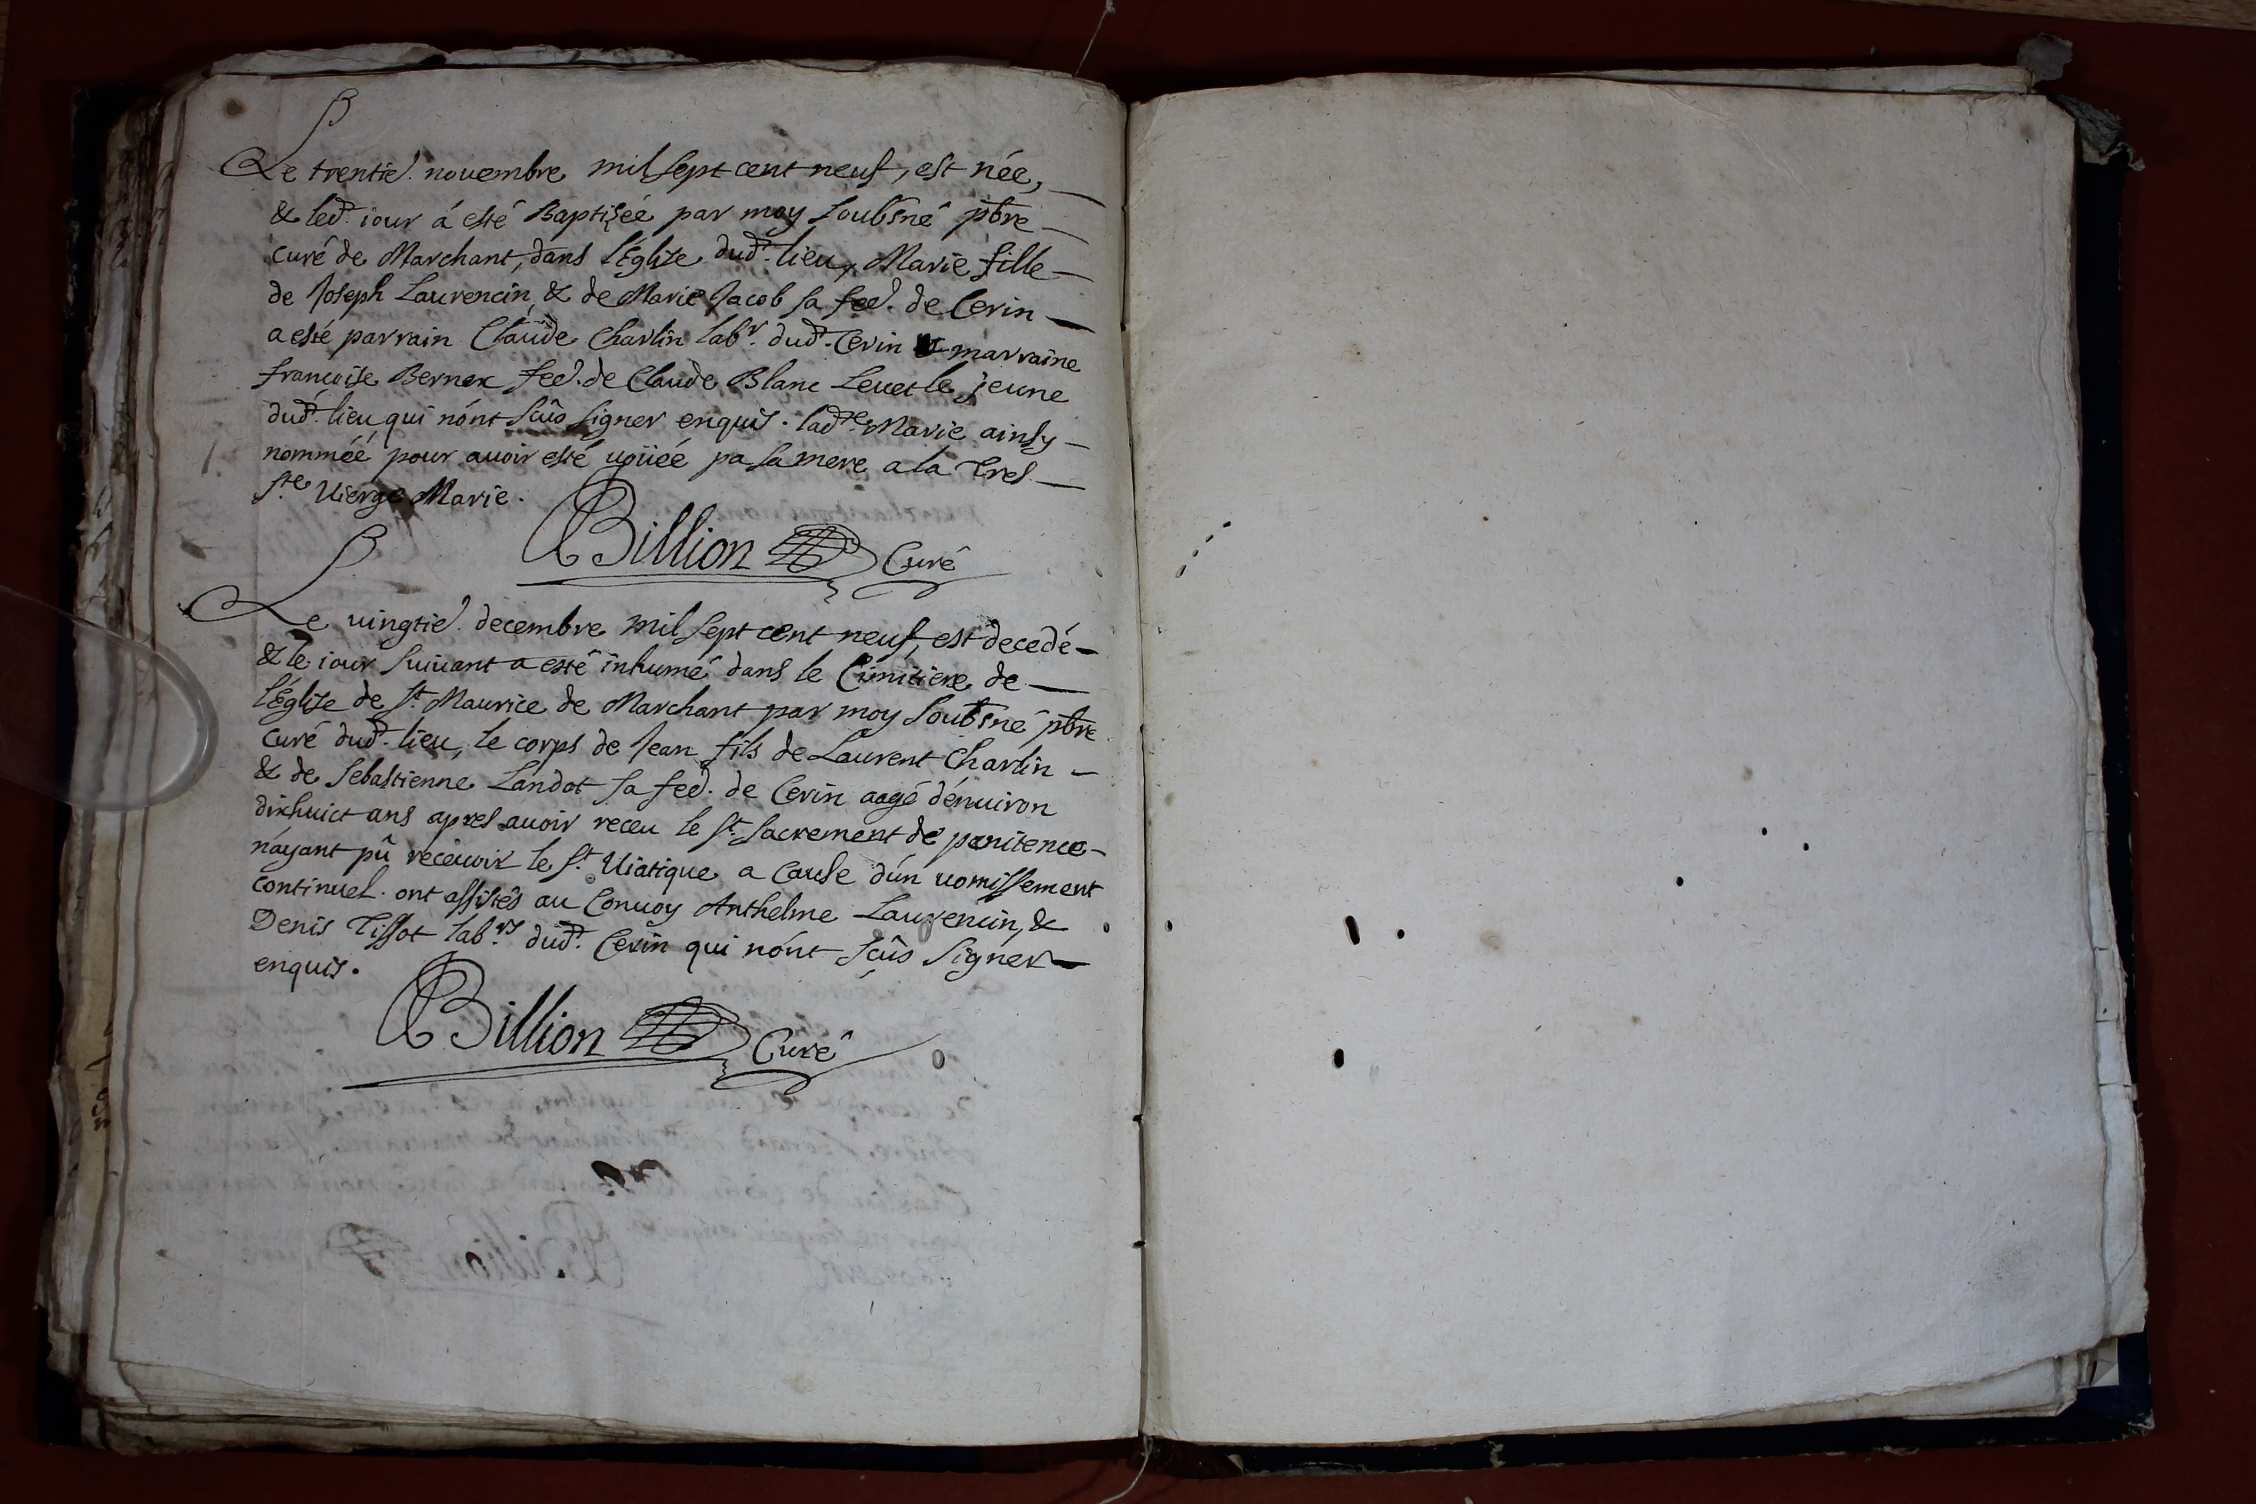 Le trentie. novembre mil sept cent neuf, est née,
& led. iour á esté Baptisée par moy soubsné pbre
curé de Marchant, dans l'Eglise dud. lieu, Marie fille
de Joseph Laurencin & de Marie Jacob sa fee. de Cerin
a esté parrain Claude Charlin labr. dud. Cerin & marraine
francoise Bernex fee. de Claude Blanc Levet le jeune
dud. lieu qui nónt scûs signer enquis. ladte Marie ainsy
nommée pour avoir esté voüée pa sa mere a la Tres
ste Vierge Marie.
Billion Curé
Le vingtie. decembre mil sept cent neuf, est decedé
& le iour suivant a esté inhumé dans le Cimitiere de
l'Eglise de st Maurice de Marchant par moy soubsné pbre
curé dud. lieu, le corps de Jean fils de Laurent Charlin
& de Sebastienne Landot sa fee. de Cerin aagé dénviron
dixhuict ans apres avoir receu le st sacrement de penitence
náyant pû recevoir le st. Viatique a cause dún vomissement
continuel. ont assistés au Convoy Anthelme Laurencin, &
Denis Tissot labrs dud. Cerin qui nónt scûs signer
enquis.
Billion Curé